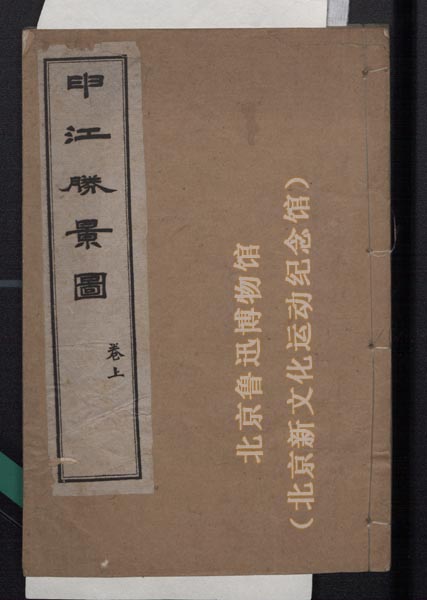 申江勝景圖
卷上
北京鲁迅博物馆
(北京新文化运动纪念馆)